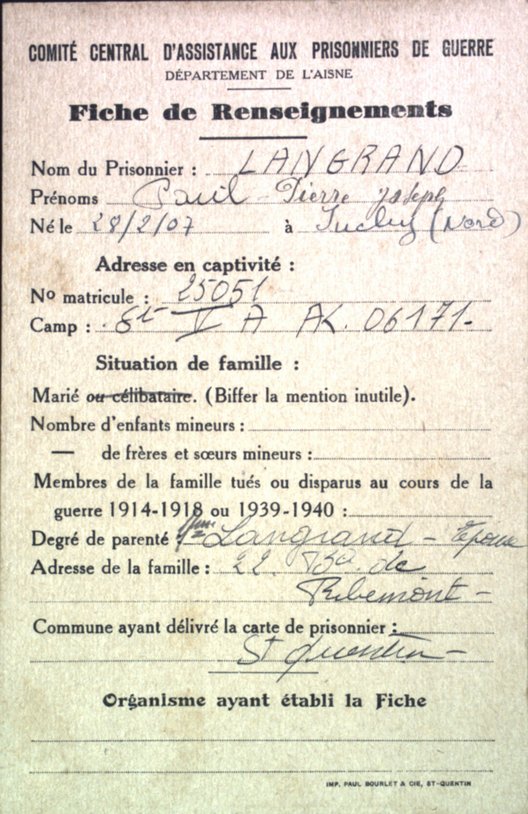 COMITÉ CENTRAL D'ASSISTANCE AUX PRISONNIERS DE GUERRE
DÉPARTEMENT DE L'AISNE
Fiche de Renseignements
Nom du Prisonnier : LANGRAND
Prénoms Paul - Pierre Joseph
Né le 28/2/07 à (Nord)
Adresse en captivité :
No matricule : 25051
Camp : St V A AK. 06171-
Situation de famille :
Marié ou célibataire. (Biffer la mention inutile).
Nombre d'enfants mineurs :
— de frères et sœurs mineurs :
Membres de la famille tués ou disparus au cours de la
guerre 1914-1918 ou 1939-1940 :
Degré de parenté Mme Langrand - Epouse
Adresse de la famille : 22. Bd. de
Ribemont -
Commune ayant délivré la carte de prisonnier :
St Quentin -
Organisme ayant établi la Fiche
IMP. PAUL BOURLET & CIE, ST-QUENTIN